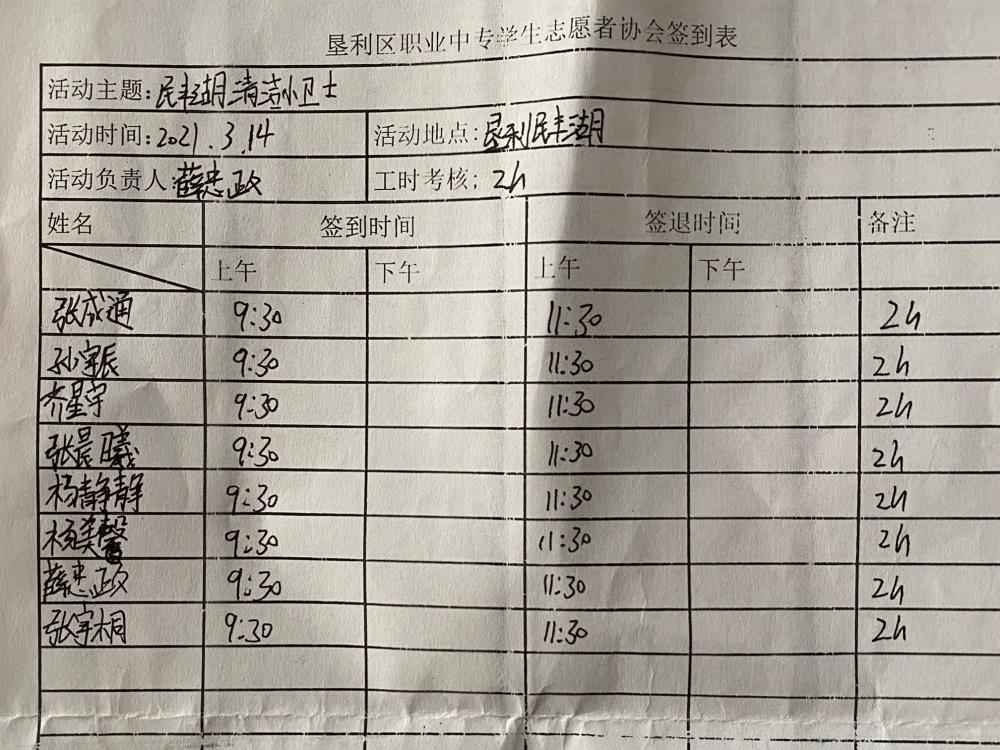 垦利区职业中专学生志愿者协会签到表
活动主题:民丰湖清洁小卫士
活动时间:2021.3.14 活动地点:垦利民丰湖
活动负责人:薛忠政 工时考核; 2h
姓名 签到时间 签退时间 备注
上午 下午 上午 下午
张成通 9:30 11:30 2h
孙宇辰 9:30 11:30 2h
齐星宇 9:30 11:30 2h
张晨曦 9:30 11:30 2h
杨静静 9:30 11:30 2h
杨美馨 9:30 11:30 2h
薛忠政 9:30 11:30 2h
张宇桐 9:30 11:30 2h